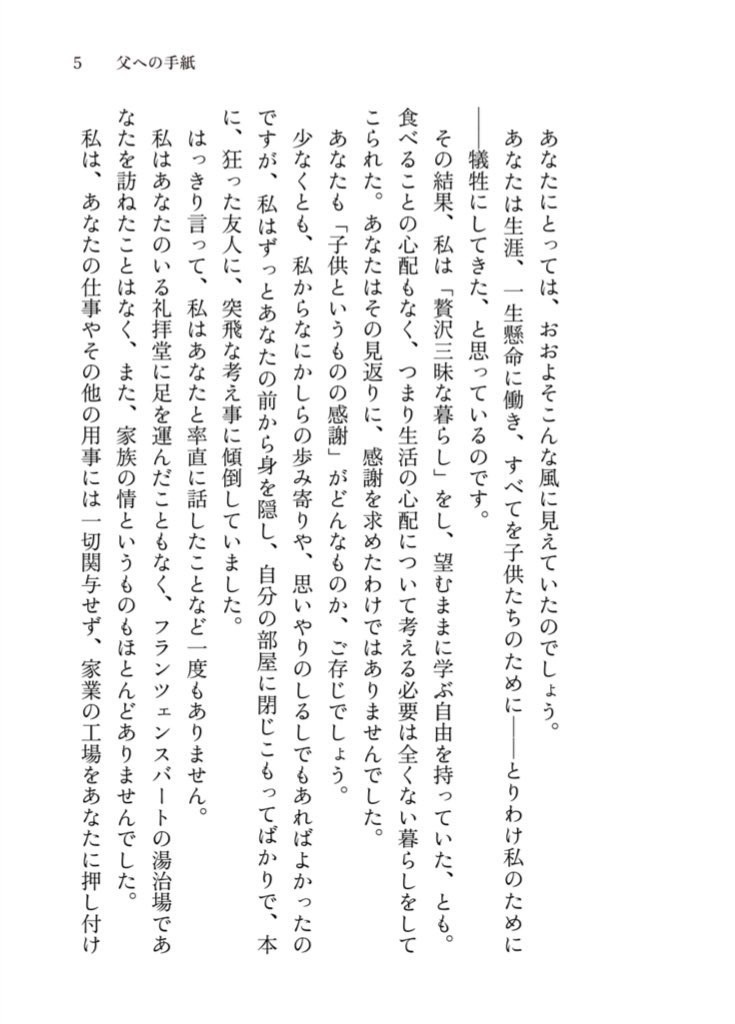 5 父への手紙
あなたにとっては、おおよそこんな風に見えていたのでしょう。
あなたは生涯、一生懸命に働き、すべてを子供たちのために――とりわけ私のために
――犠牲にしてきた、と思っているのです。
その結果、私は「贅沢三昧な暮らし」をし、望むままに学ぶ自由を持っていた、とも。
食べることの心配もなく、つまり生活の心配について考える必要は全くない暮らしをして
こられた。あなたはその見返りに、感謝を求めたわけではありませんでした。
あなたも「子供というものの感謝」がどんなものか、ご存じでしょう。
少なくとも、私からなにかしらの歩み寄りや、思いやりのしるしでもあればよかったの
ですが、私はずっとあなたの前から身を隠し、自分の部屋に閉じこもってばかりで、本
に、狂った友人に、突飛な考え事に傾倒していました。
はっきり言って、私はあなたと率直に話したことなど一度もありません。
私はあなたのいる礼拝堂に足を運んだこともなく、フランツェンスバートの湯治場であ
なたを訪ねたことはなく、また、家族の情というものもほとんどありませんでした。
私は、あなたの仕事やその他の用事には一切関与せず、家業の工場をあなたに押し付け